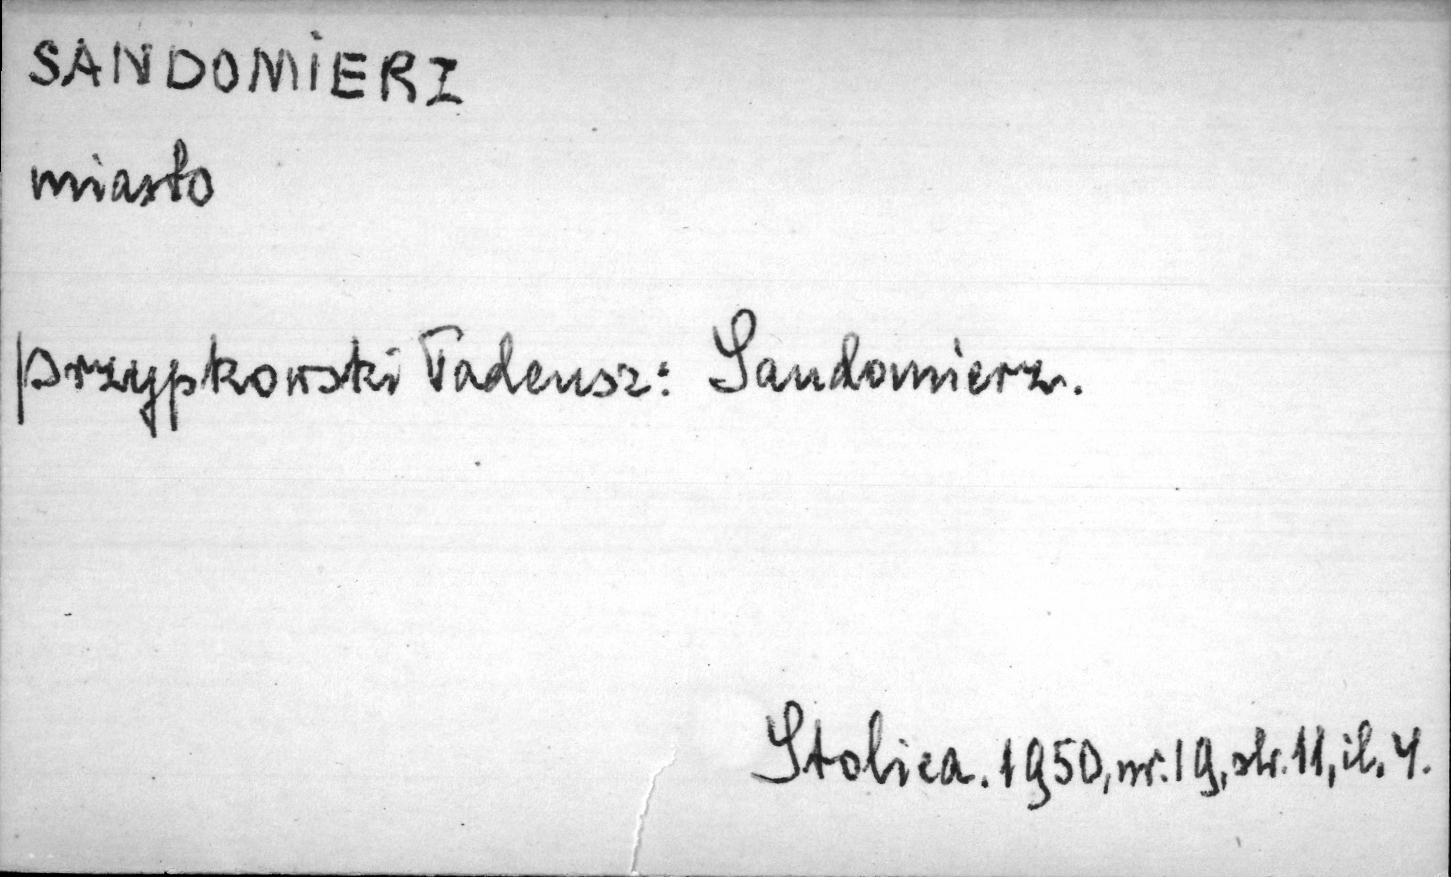 SANDOMIERZ
miasto
Przypkowski Tadeusz: Sandomierz.
Stolica. 1950, nr. 19, str. 11, il. 4.